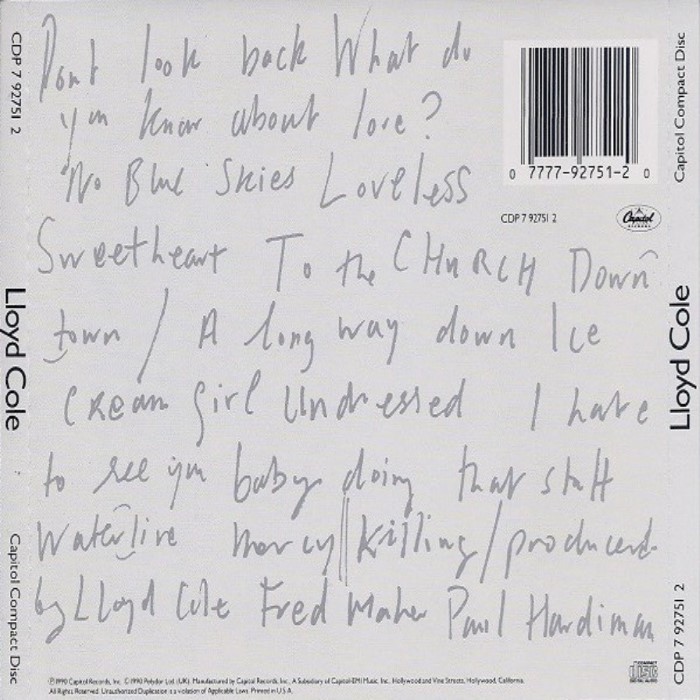 Dont look back What do
you know about love?
No Blue Skies Loveless
Sweetheart To the CHURCH Down
town / A long way down Ice
Cream Girl Undressed I hate
to see you baby doing that stuff
Waterline Mercy || Killing / produced
by Lloyd Cole Fred Maher Paul Hardiman
0 7777-92751-2 0
CDP 7 92751 2
Capitol
CDP 7 92751 2
Lloyd Cole
Capitol Compact Disc
Capitol Compact Disc
Lloyd Cole
CDP 7 92751 2
℗1990 Capitol Records, Inc. ©1990 Polydor Ltd. (UK). Manufactured by Capitol Records, Inc., A Subsidiary of Capitol-EMI Music, Inc., Hollywood and Vine Streets, Hollywood, California.
All Rights Reserved. Unauthorized Duplication is a violation of Applicable Laws. Printed in U.S.A.
COMPACT
disc
DIGITAL AUDIO